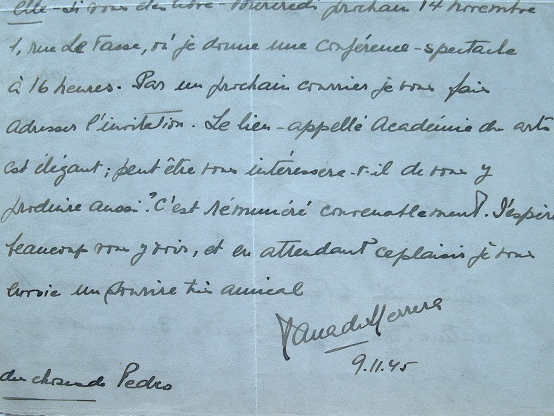 elle - si vous êtes libre - mercredi prochain 14 novembre
1, rue Le Tasse, où je donne une conférence-spectacle
à 16 heures. Par un prochain courrier je vous fais
adresser l'invitation. Le lieu - appellé Académie des arts
est élégant; peut être vous intéressera-t-il de vous y
produire aussi? C'est rémunéré convenablement. J'espère
beaucoup vous y voir, et en attendant ce plaisir je vous
envoie un sourire très amical
de Herrera
9.11.45
Pedro